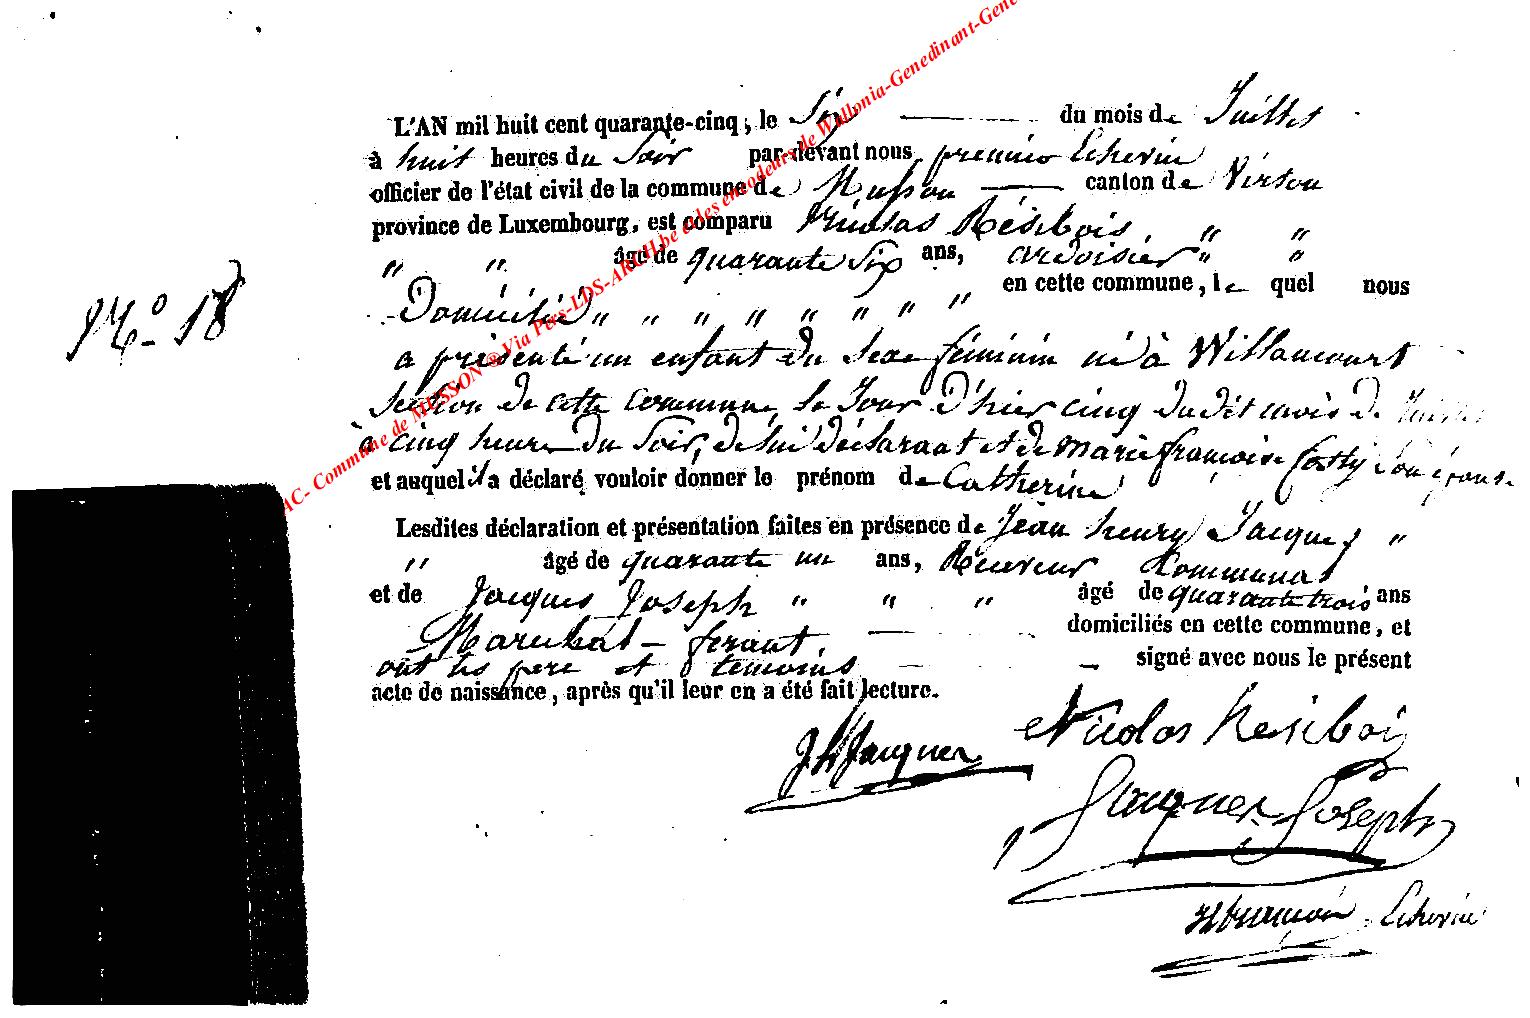 L'AN mil huit cent quarante-cinq, le Six du mois de Juillet
à huit heures du Soir par devant nous premier Echevin
officier de l'état civil de la commune de Musson canton de Virton
province de Luxembourg, est comparu Nicolas Résibois, " "
" " âgé de quarante Six ans, ardoisier " "
Domicilié " " " " " " " " en cette commune, le quel nous
N.° 18
a présenté un enfant du Sexe féminin né à Willancourt
Section de cette commune, le Jour d'hier cinq du dit mois de Juillet
à cinq heures du Soir, de lui déclarant et de Marie françoise Son épouse
et auquel il a déclaré vouloir donner le prénom de Catherine
Lesdites déclaration et présentation faites en présence de Jean henry Jacques "
" âgé de quarante un ans, Receveur Communal
et de Jacques Joseph " " " âgé de quarante trois ans
Maréchal - ferant domiciliés en cette commune, et
ont les père et témoins signé avec nous le présent
acte de naissance, après qu'il leur en a été fait lecture.
J H Jacques Nicolas Resibois
Jacques Joseph
Echevin
AC- Commune de MUSSON ® Via Pers-LDS-ARCH.be et les encodeurs de Wallonia-Genedinant-Gene